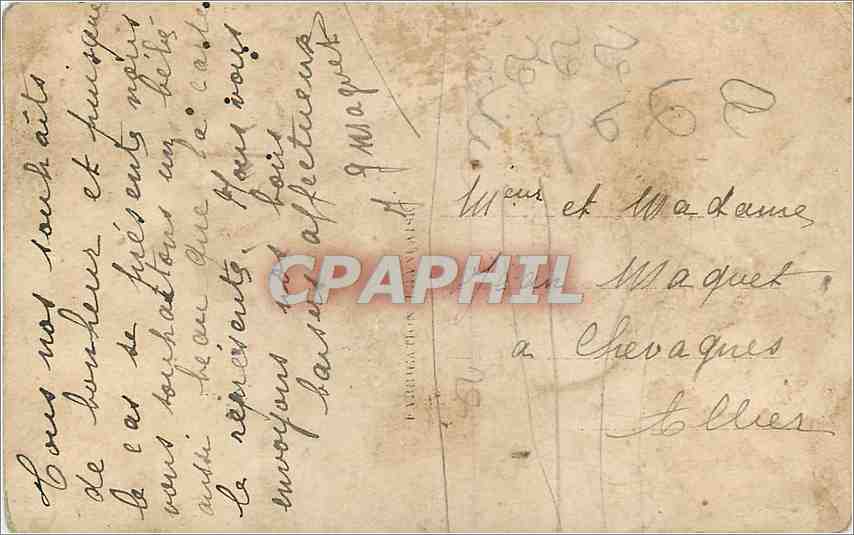 Tous nos souhaits
de bonheur et puisque
le cas se présente nous
vous souhaitons un bébé
aussi beau que la carte
le représente. Nous vous
envoyons nos bons
baisers affectueux
Maquet
Meur et Madame
Jean Maquet
a Chevagnes
Allier
FABRICATION FRANÇAISE
CPAPHIL